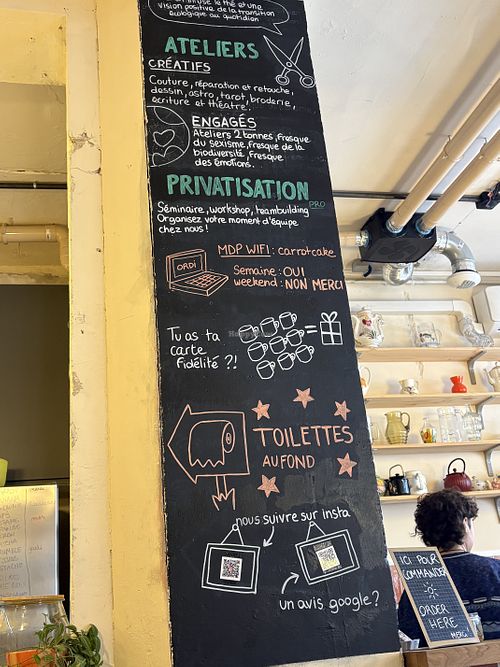 diffuse le thé et une
vision positive de la transition
écologique au quotidien
ATELIERS
CRÉATIFS
Couture, réparation et retouche,
dessin, astro, tarot, broderie,
écriture et théâtre.
ENGAGÉS
Ateliers 2 tonnes, fresque
du sexisme, fresque de la
biodiversité, fresque
des émotions.
PRIVATISATION
PRO
Séminaire, workshop, teambuilding
Organisez votre moment d'équipe
chez nous!
MDP WIFI: carrotcake
ORDI
Semaine: OUI
weekend: NON MERCI
Tu as ta
carte
fidélité ?!
=
TOILETTES
AU FOND
nous suivre sur insta
un avis google?
ICI POUR
COMMANDER
-O-
ORDER
HERE
MERCI